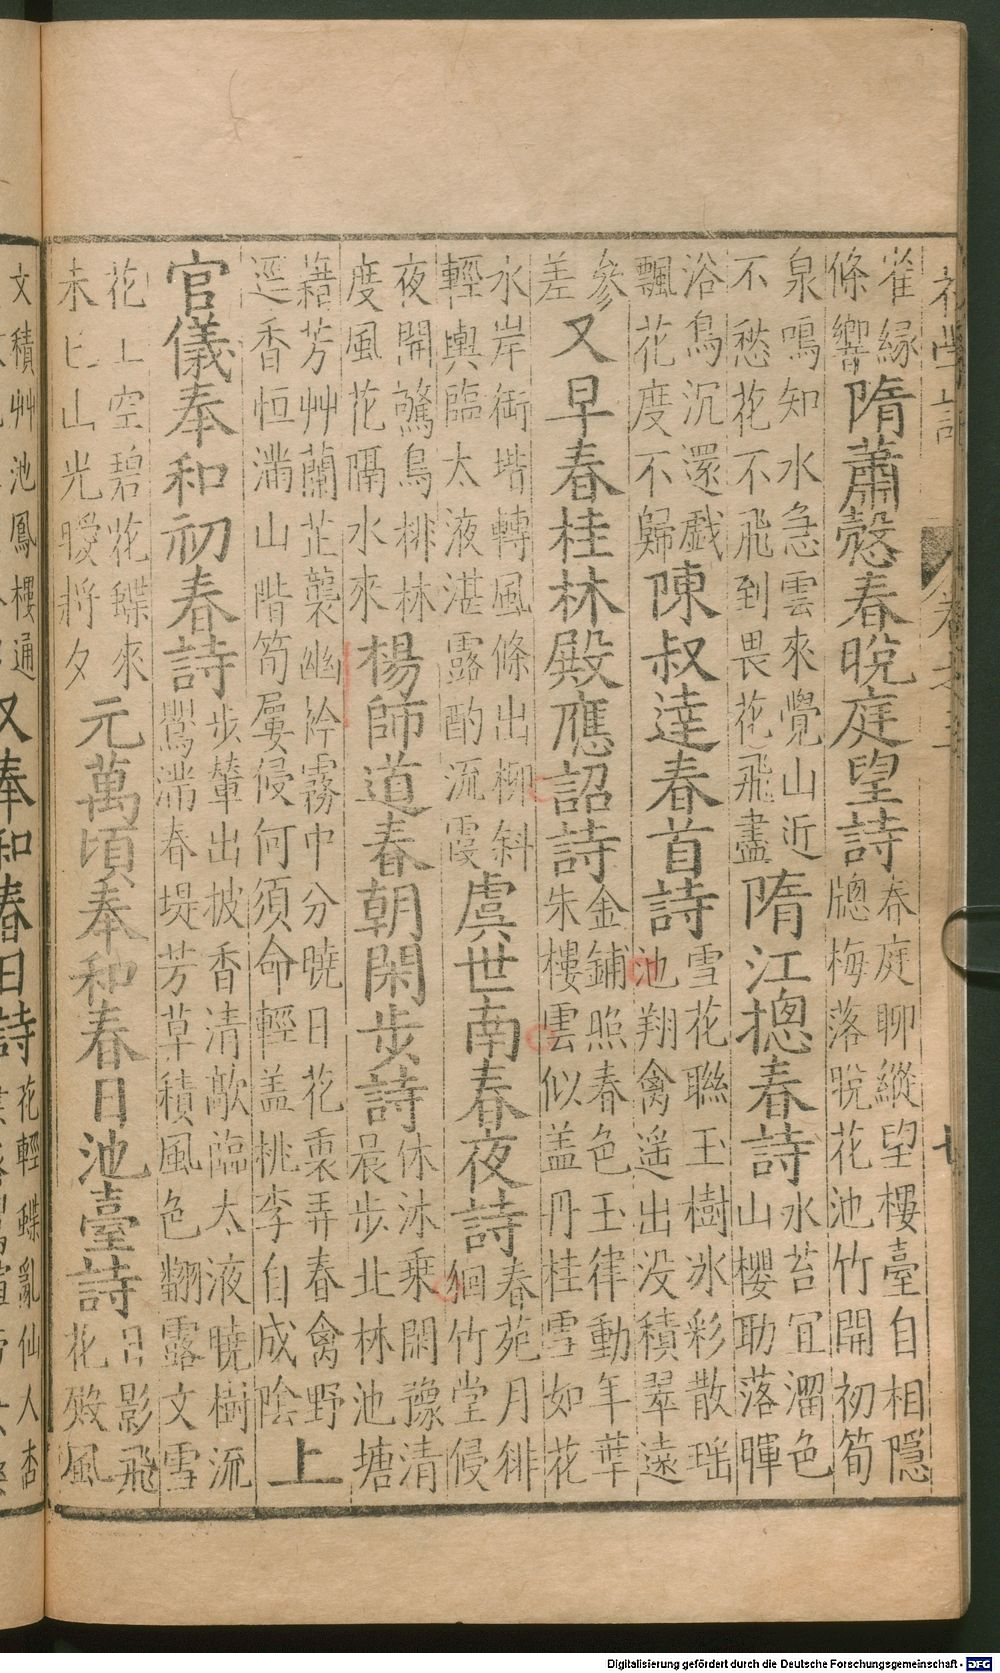 初學記
卷之三
七
雀緣
條響
隋蕭慤春晚庭望詩
春庭聊縱望樓臺自相隱
牕梅落晚花池竹開初筍
泉鳴知水急雲來覺山近
不愁花不飛到畏花飛盡
隋江揔春詩
水苔宜溜色
山櫻助落暉
浴鳥沉還戲
飄花度不歸
陳叔達春首詩
雪花聯玉樹氷彩散瑶
池翔禽遥出没積翠遠
參
差
又早春桂林殿應詔詩
金鋪照春色玉律動年華
朱樓雲似盖丹桂雪如花
水岸衘堦轉風條出柳斜
輕輿臨太液湛露酌流霞
虞世南春夜詩
春苑月徘
徊竹堂侵
夜開驚鳥排林
度風花隔水來
楊師道春朝閑步詩
休沐乘閑豫清
晨步北林池塘
籍芳艸蘭芷襲幽衿霧中分曉日花裏弄春禽野
逕香恒滿山階筍屢侵何須命輕盖桃李自成陰
上
官儀奉和初春詩
步輦出披香清歌臨太液曉樹流
鸎滿春堤芳草積風色翻露文雪
花上空碧花蝶來
未已山光曖將夕
元萬頃奉和春日池臺詩
日影飛
花殿風
文積艸池鳳樓通
又奉和春日詩
花輕蝶亂仙人杏
Digitalisierung gefördert durch die Deutsche Forschungsgemeinschaft - DFG